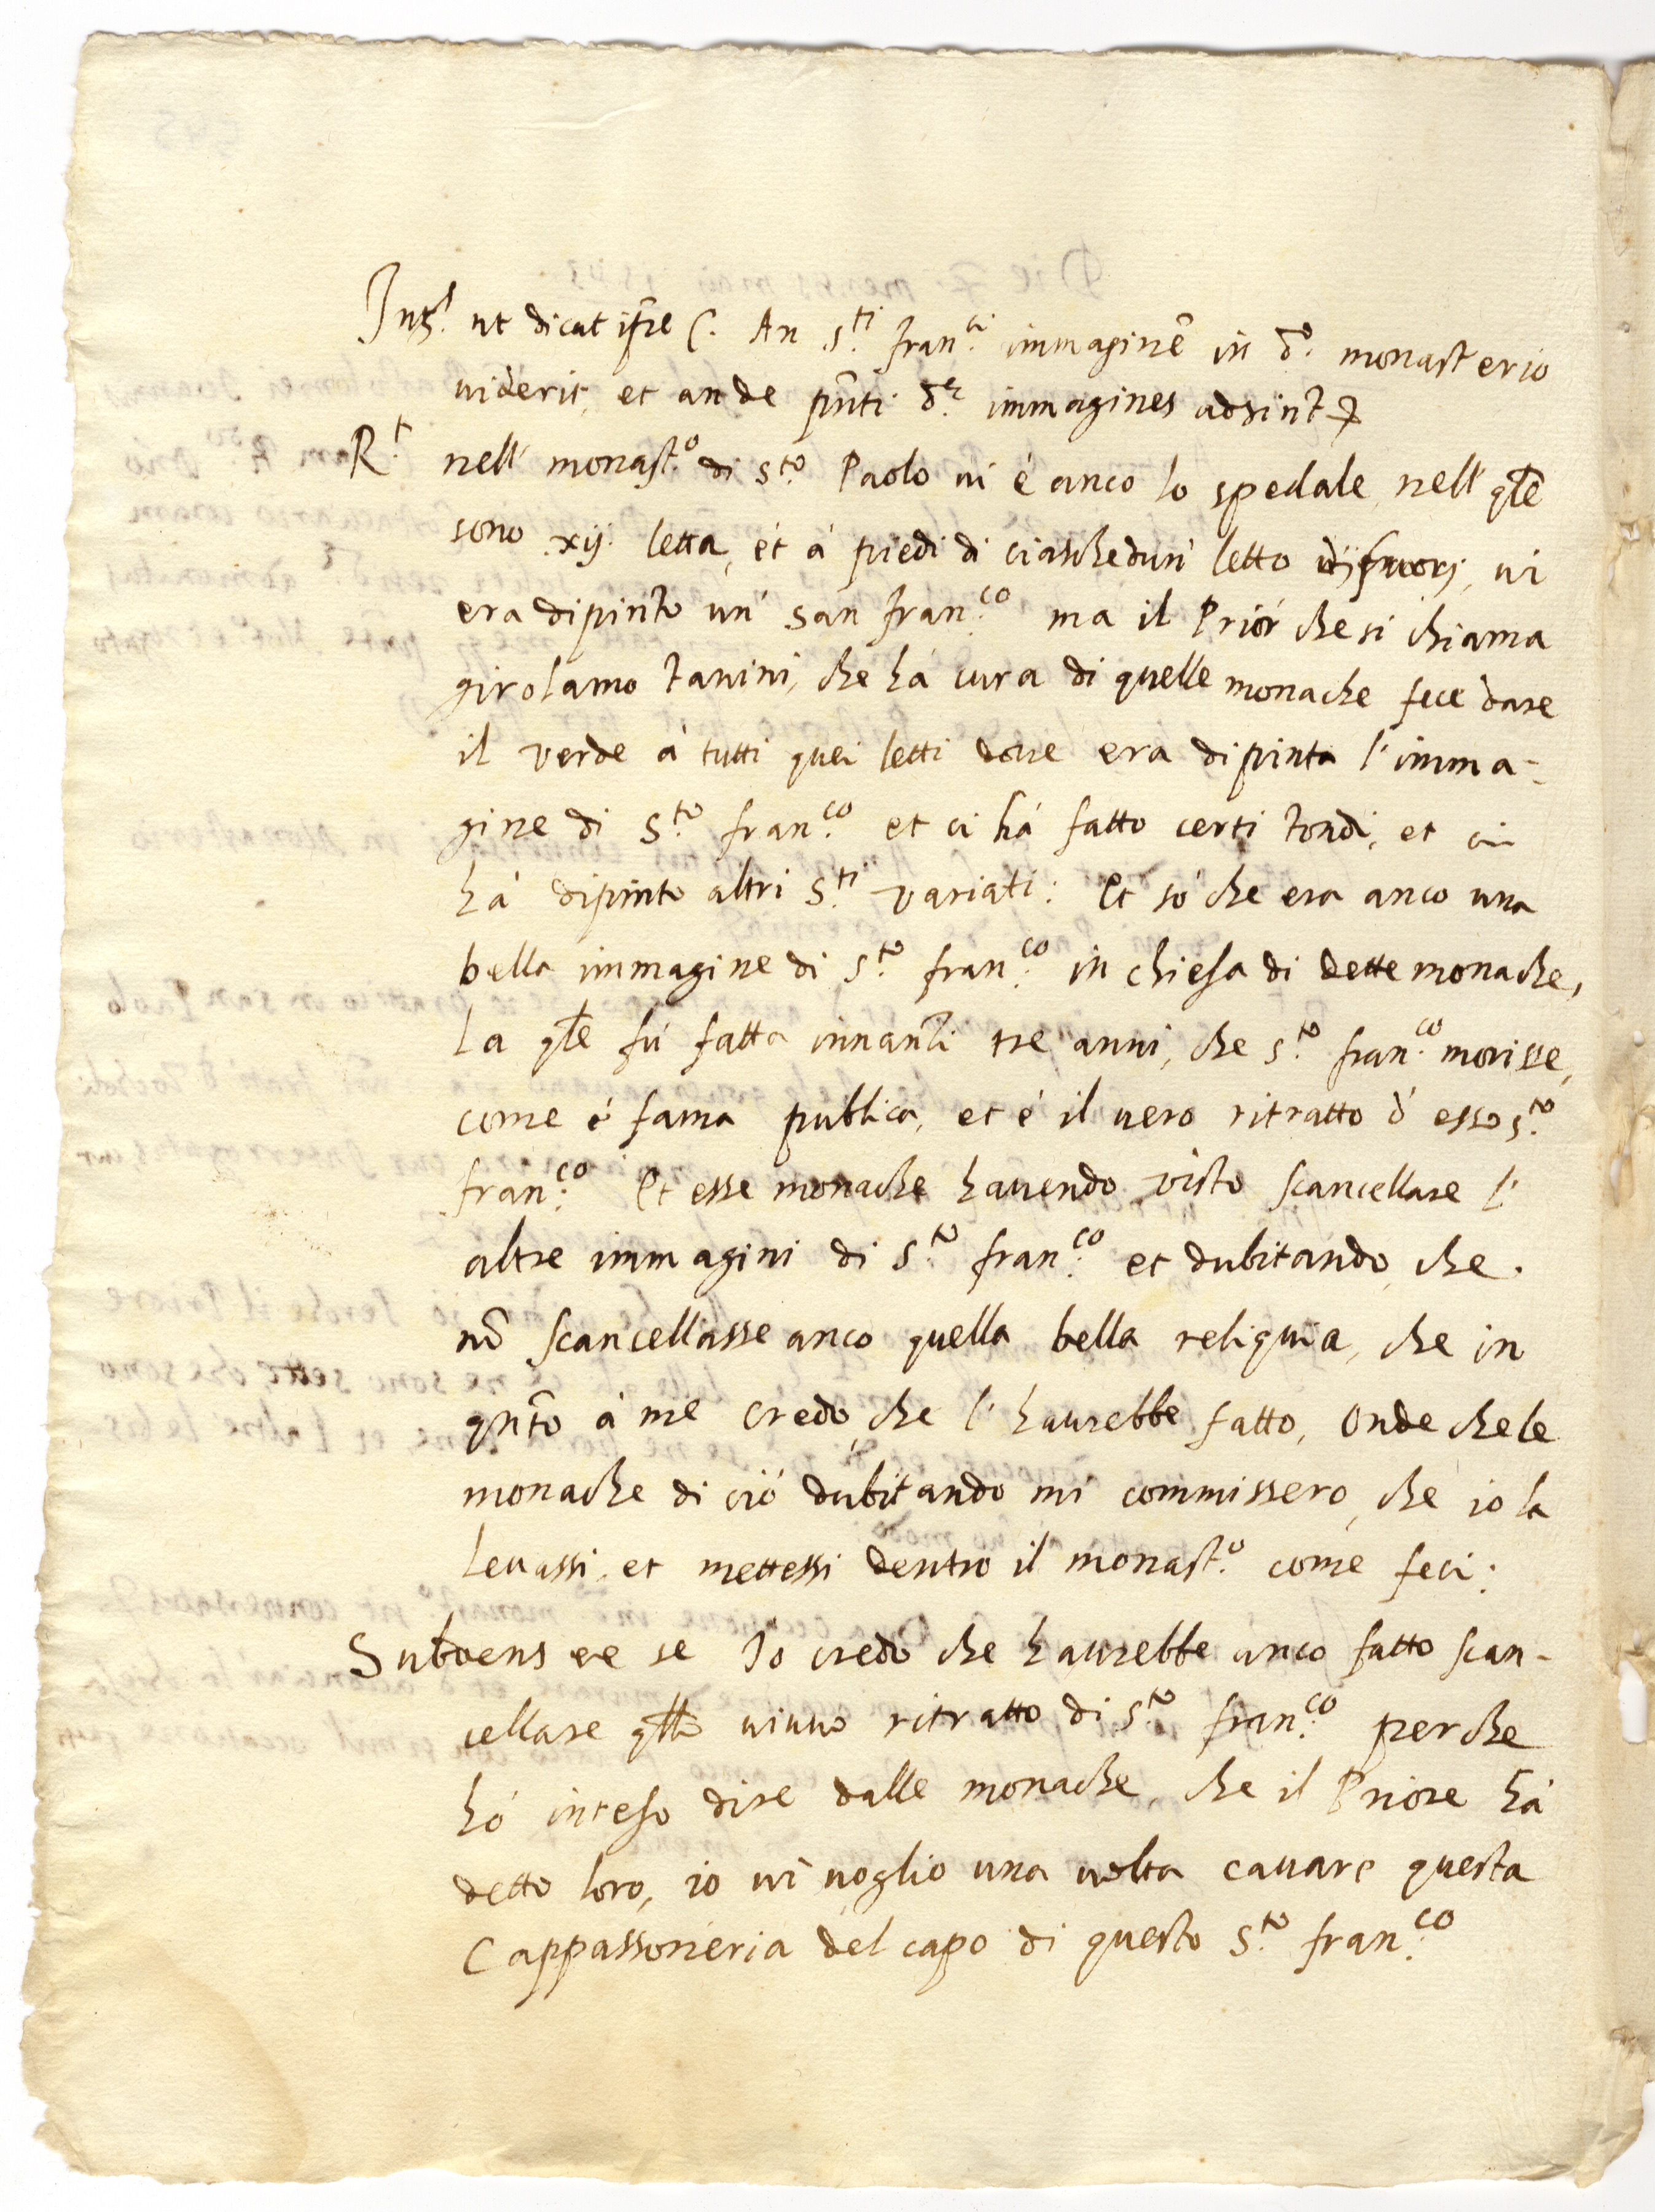 Int.s ut dicat ip̃e C. An S.ti Fran.ci immaginẽ in d.o monasterio
uiderit, et an de pñti d.e immagines adsint
R.t nell' monast.o di S.to Paolo ui é anco lo spedale, nell' qle
sono xij. letta, ét á piedi di ciascheduń letto di fuori, ui
era dipinto uń San Fran.co ma il Priór che si chiama
girolamo Tanini, che há cura di quelle monache fece dare
il verde á tutti quei letti doue era dipinta l'imma-
gine di S.to fran.co et ci há fatto certi tondi, et ci
há dipinto altri S.ti variati: Et só che era anco una
bella immagine di S.to fran.co in chiesa di dette monache,
la qle fú fatta innanti tre anni, che S.to fran.co morisse,
come é fama publica, et é il uero ritratto d' esso S.to
fran.co Et esse monache hauendo visto scancellare l'
altre immagini di S.to fran.co et dubitando, che
nõ scancellasse anco quella bella reliquia, che in
qñto á me credo, che l' haurebbe fatto, onde che le
monache di ció dubitando mi commissero, che io la
leuassi, et mettessi dentro il monast.o come feci:
Subdens ex se Io credo che haurebbe anco fatto scan-
cellare qllo uiuo ritratto di S.to fran.co perche
hó inteso dire dalle monache, che il Priore há
detto loro, io ui uoglio una uolta cauare questa
Cappassoneria del capo di questo S.to fran.co